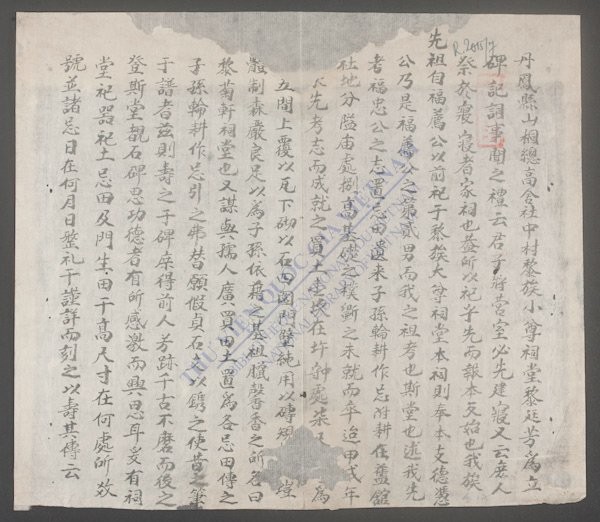 丹鳳縣山桐總高舍社中村黎族小尊祠堂黎廷芳為立
碑記詞事聞之禮云君子將營室必先建寢又云庶人
祭於寢寢者家祠也蓋所以祀乎先而報本反始也我族
先祖自福薦公以前祀于黎族大尊祠堂本祠則奉本支德憑
公乃是福薦公之第貳男而我之祖考也斯堂也述我先
考福忠公之志置忌田遺來子孫輪耕作忌附耕在藍館
社地分隘庙處捌高基礎之樸斲之未就而卒迨甲戌年
先考志而成就之買土壹所在圷 處柒 為
五間上覆以瓦下砌以石四圍門壁純用以磚
體制森嚴良足以為子孫依藉之基祖臘馨香之所名曰
黎菊軒祠堂也又謀與孺人廣買田土置為各忌田傳之
子孫輪耕作忌引之弗替願假貞石 以鐫之使昔之筆
于譜者茲則壽之于碑庶得前人芳跡千古不磨而後之
登斯堂覩石碑思功德者有所感激而興思耳爰有祠
堂祀器祀土忌田及門生田干高尺寸在何處所效
號並諸忌日在何月日整礼干謹詳而刻之以壽其傳云
R.2015/7
THƯ VIỆN QUỐC GIA VIỆT NAM